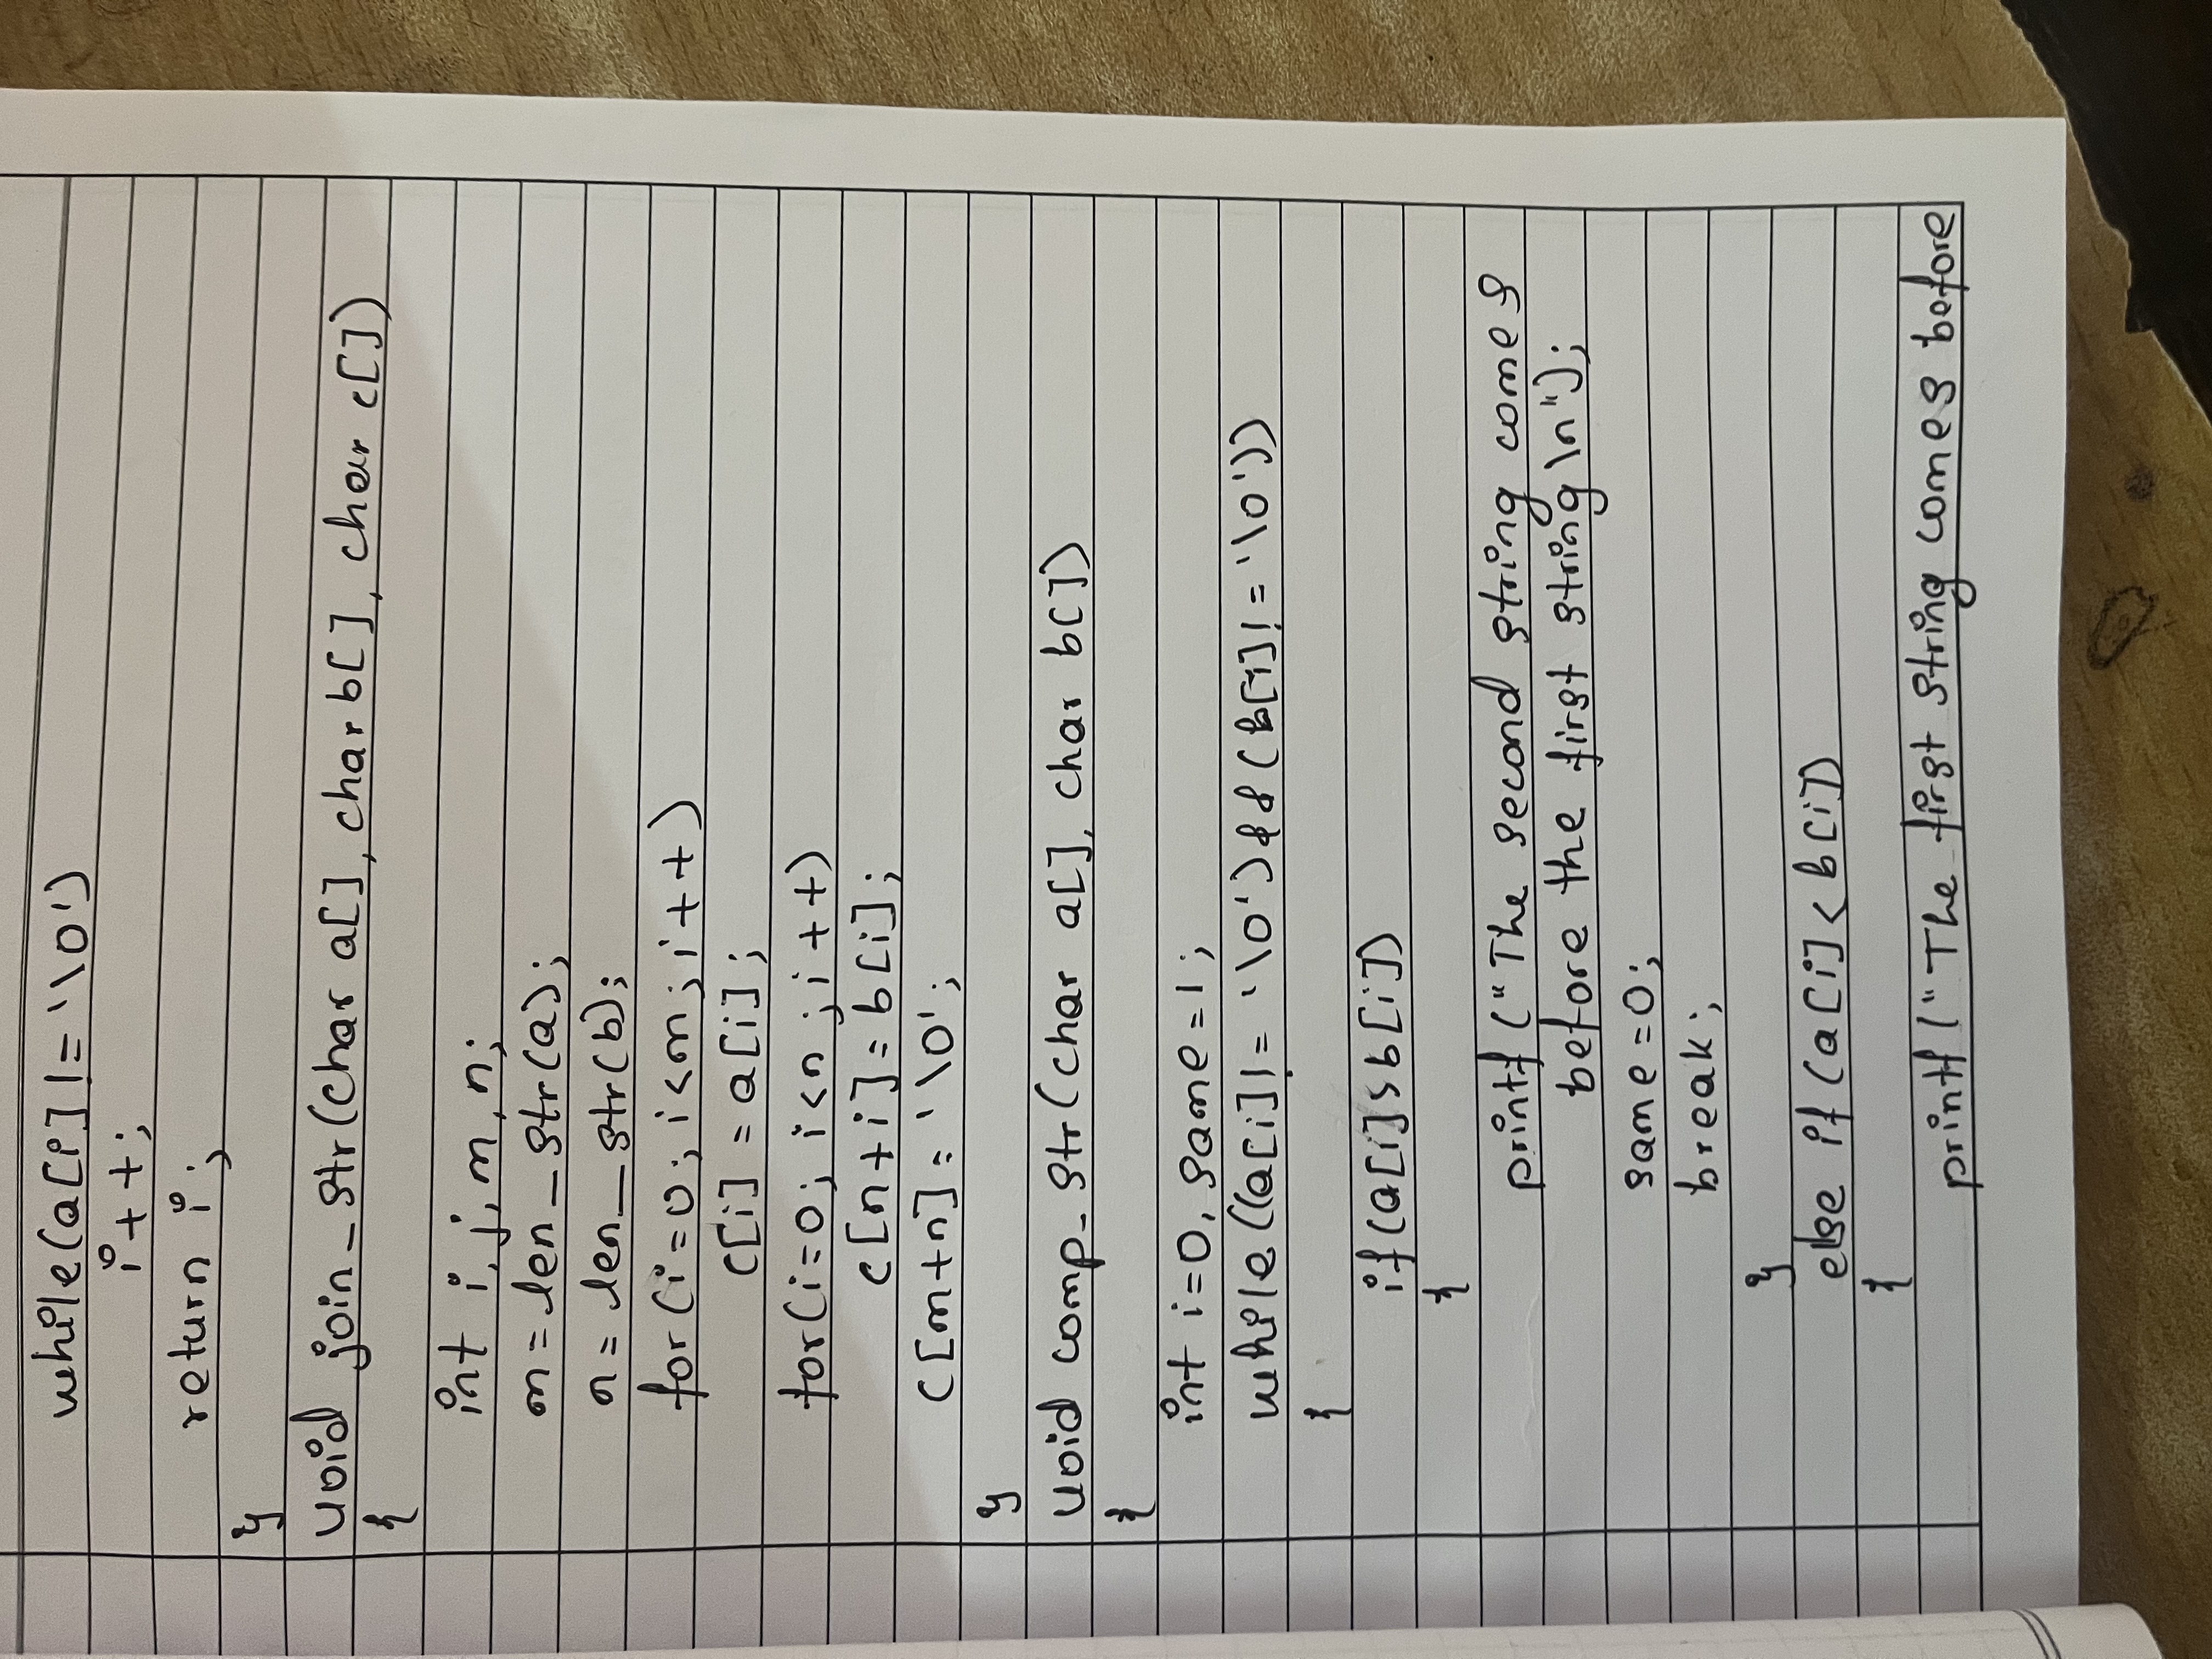 while(a[i]!='\0')
i++;
return i;
}
void join_str(char a[], char b[], char c[])
{
int i, j, m, n;
m = len_str(a);
n = len_str(b);
for(i=0; i<m; i++)
c[i] = a[i];
for(i=0; i<n; i++)
c[n+i] = b[i];
c[m+n] = '\0';
}
void comp_str(char a[], char b[])
{
int i=0, same=1;
while((a[i]!='\0')&&(b[i]!='\0'))
{
if(a[i]>b[i])
{
printf("The second string comes
before the first string\n");
same=0;
break;
}
else if(a[i]<b[i])
{
printf("The first string comes before